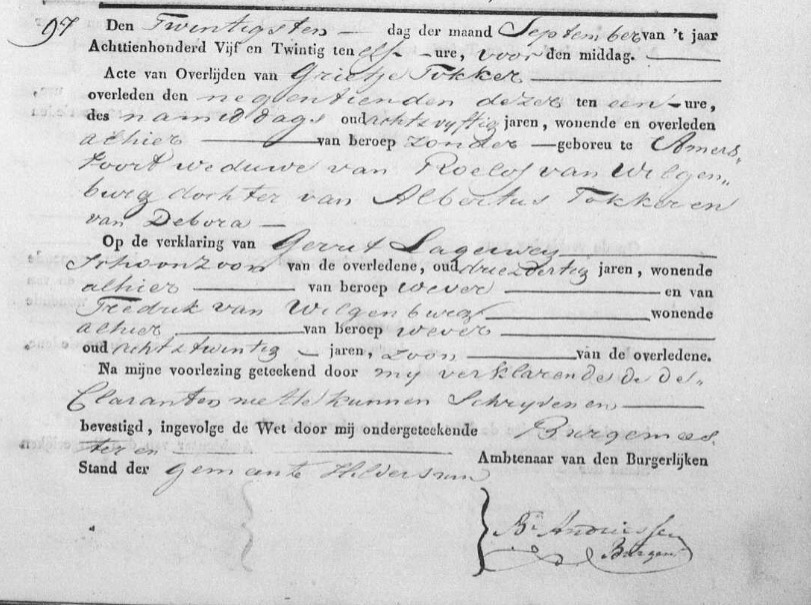 97 Den Twintigsten dag der maand September van 't jaar
Achttienhonderd Vijf en Twintig ten elf ure, voor den middag.
Acte van Overlijden van Grietje Tokker
overleden den negentienden dezer ten een ure,
des namiddags oud achtsvyftig jaren, wonende en overleden
alhier van beroep zonder geboren te Amers-
foort weduwe van Roelof van Wilgen-
burg dochter van Albertus Tokker en
van Debora
Op de verklaring van Gerrit Lagerweij
Schoonzoon van de overledene, oud driezdertig jaren, wonende
alhier van beroep wever en van
Fredrik van Wilgenburg wonende
alhier van beroep wever
oud achtstwintig jaren, zoon van de overledene.
Na mijne voorlezing geteekend door my verklarende de de-
Claranten niet te kunnen Schryven en
bevestigd, ingevolge de Wet door mij ondergeteekende Burgemees
ter en Ambtenaar van den Burgerlijken
Stand der gemeente Hilversum
Andriessen
Burgem